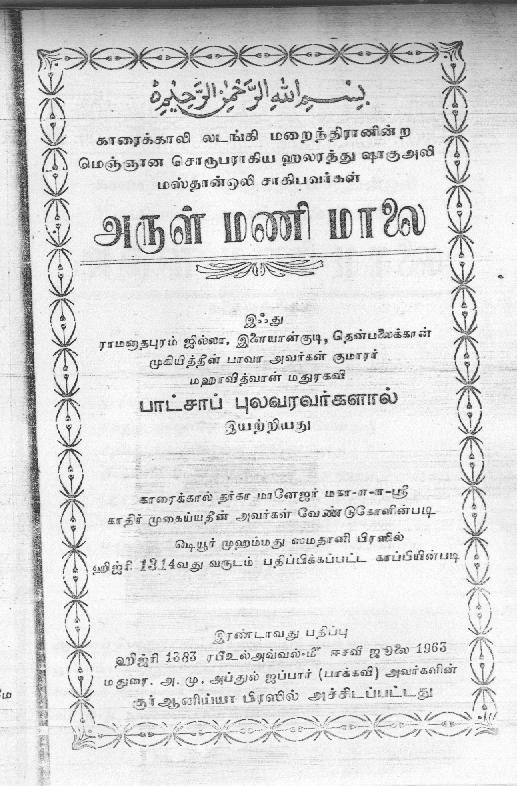 بسم الله الرحمن الرحيم
காரைக்காலி லடங்கி மறைந்திரானின்ற
மெஞ்ஞான சொரூபராகிய ஹலரத்து ஷாகுஅலி
மஸ்தான்ஒலி சாகிபவர்கள்
அருள் மணி மாலை
இஃது
ராமனாதபுரம் ஜில்லா, இளையான்குடி, தென்பலைக்கான்
முகியித்தீன் பாவா அவர்கள் குமாரர்
மஹாவித்வான் மதுரகவி
பாட்சாப் புலவரவர்களால்
இயற்றியது
காரைக்கால் தர்கா மானேஜர் மகா-ஈ-ஈ-ஸ்ரீ
காதிர் முகைய்யதீன் அவர்கள் வேண்டுகோளின்படி
டியூர் முஹம்மது ஸமதானி பிரஸில்
ஹிஜ்ரி 1314வது வருடம் பதிப்பிக்கப்பட்ட காப்பியின்படி
இரண்டாவது பதிப்பு
ஹிஜ்ரி 1383 ரபீஉல்அவ்வல்-மீ ஈசவி ஜூலை 1963
மதுரை, அ. மு. அப்துல் ஐப்பார் (பாக்கவி) அவர்களின்
குர்ஆனிய்யா பிரஸில் அச்சிடப்பட்டது
மே